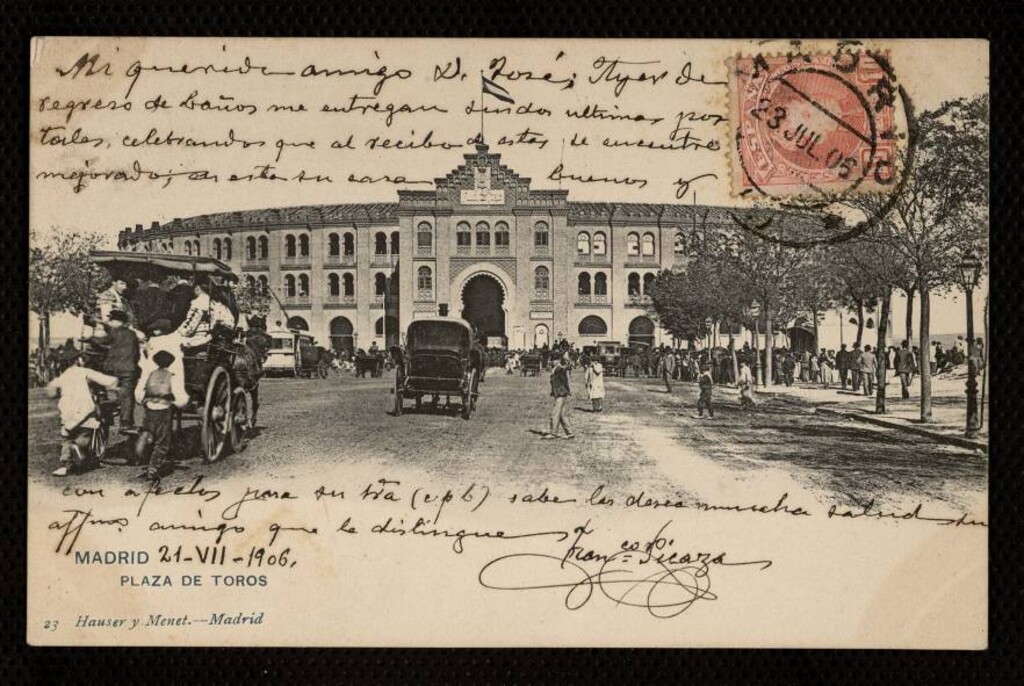 Mi querido amigo D. José; Ayer de
regreso de baños me entregan sus dos ultimas pos
tales, celebrandos que al recibo de estas se encuentre
mejorado, en esta su casa buenos y
con afectos para su tra (c p b) sabe les desea mucha salud su
affmo amigo que le distingue
Franco Picaza
MADRID 21-VII-1906.
PLAZA DE TOROS
23 Hauser y Menet.—Madrid
MADRID
23 JUL 06